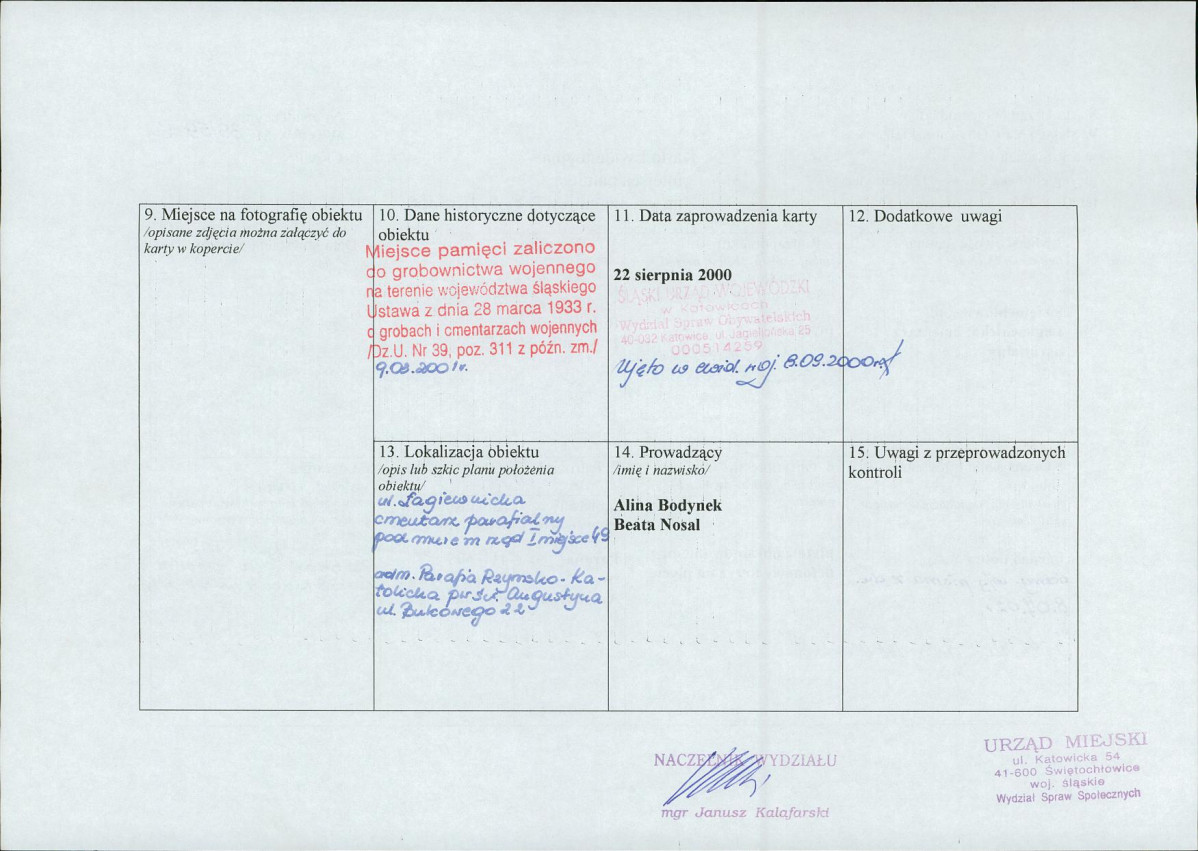 9. Miejsce na fotografię obiektu
/opisane zdjęcia można załączyć do
karty w kopercie/
10. Dane historyczne dotyczące
obiektu
Miejsce pamięci zaliczono
do grobownictwa wojennego
na terenie województwa śląskiego
Ustawa z dnia 28 marca 1933 r.
o grobach i cmentarzach wojennych
/Dz.U. Nr 39, poz. 311 z późn. zm./
9.08.2001r.
11. Data zaprowadzenia karty
22 sierpnia 2000
ŚLĄSKI URZĄD WOJEWÓDZKI
w Katowicach
Wydział Spraw Obywatelskich
40-032 Katowice, ul. Jagiellońska 25
000514259
Ujęto w ewid. woj. 8.09.2000r.
12. Dodatkowe uwagi
13. Lokalizacja obiektu
/opis lub szkic planu położenia
obiektu/
ul. Łagiewnicka
cmentarz parafialny
pod murem rząd I miejsce 49
adm. Parafia Rzymsko-Ka-
tolicka pw św. Augustyna
ul. Bukowego 22
14. Prowadzący
/imię i nazwisko/
Alina Bodynek
Beata Nosal
15. Uwagi z przeprowadzonych
kontroli
NACZELNIK WYDZIAŁU
mgr Janusz Kalafarski
URZĄD MIEJSKI
ul. Katowicka 54
41-600 Świętochłowice
woj. śląskie
Wydział Spraw Społecznych